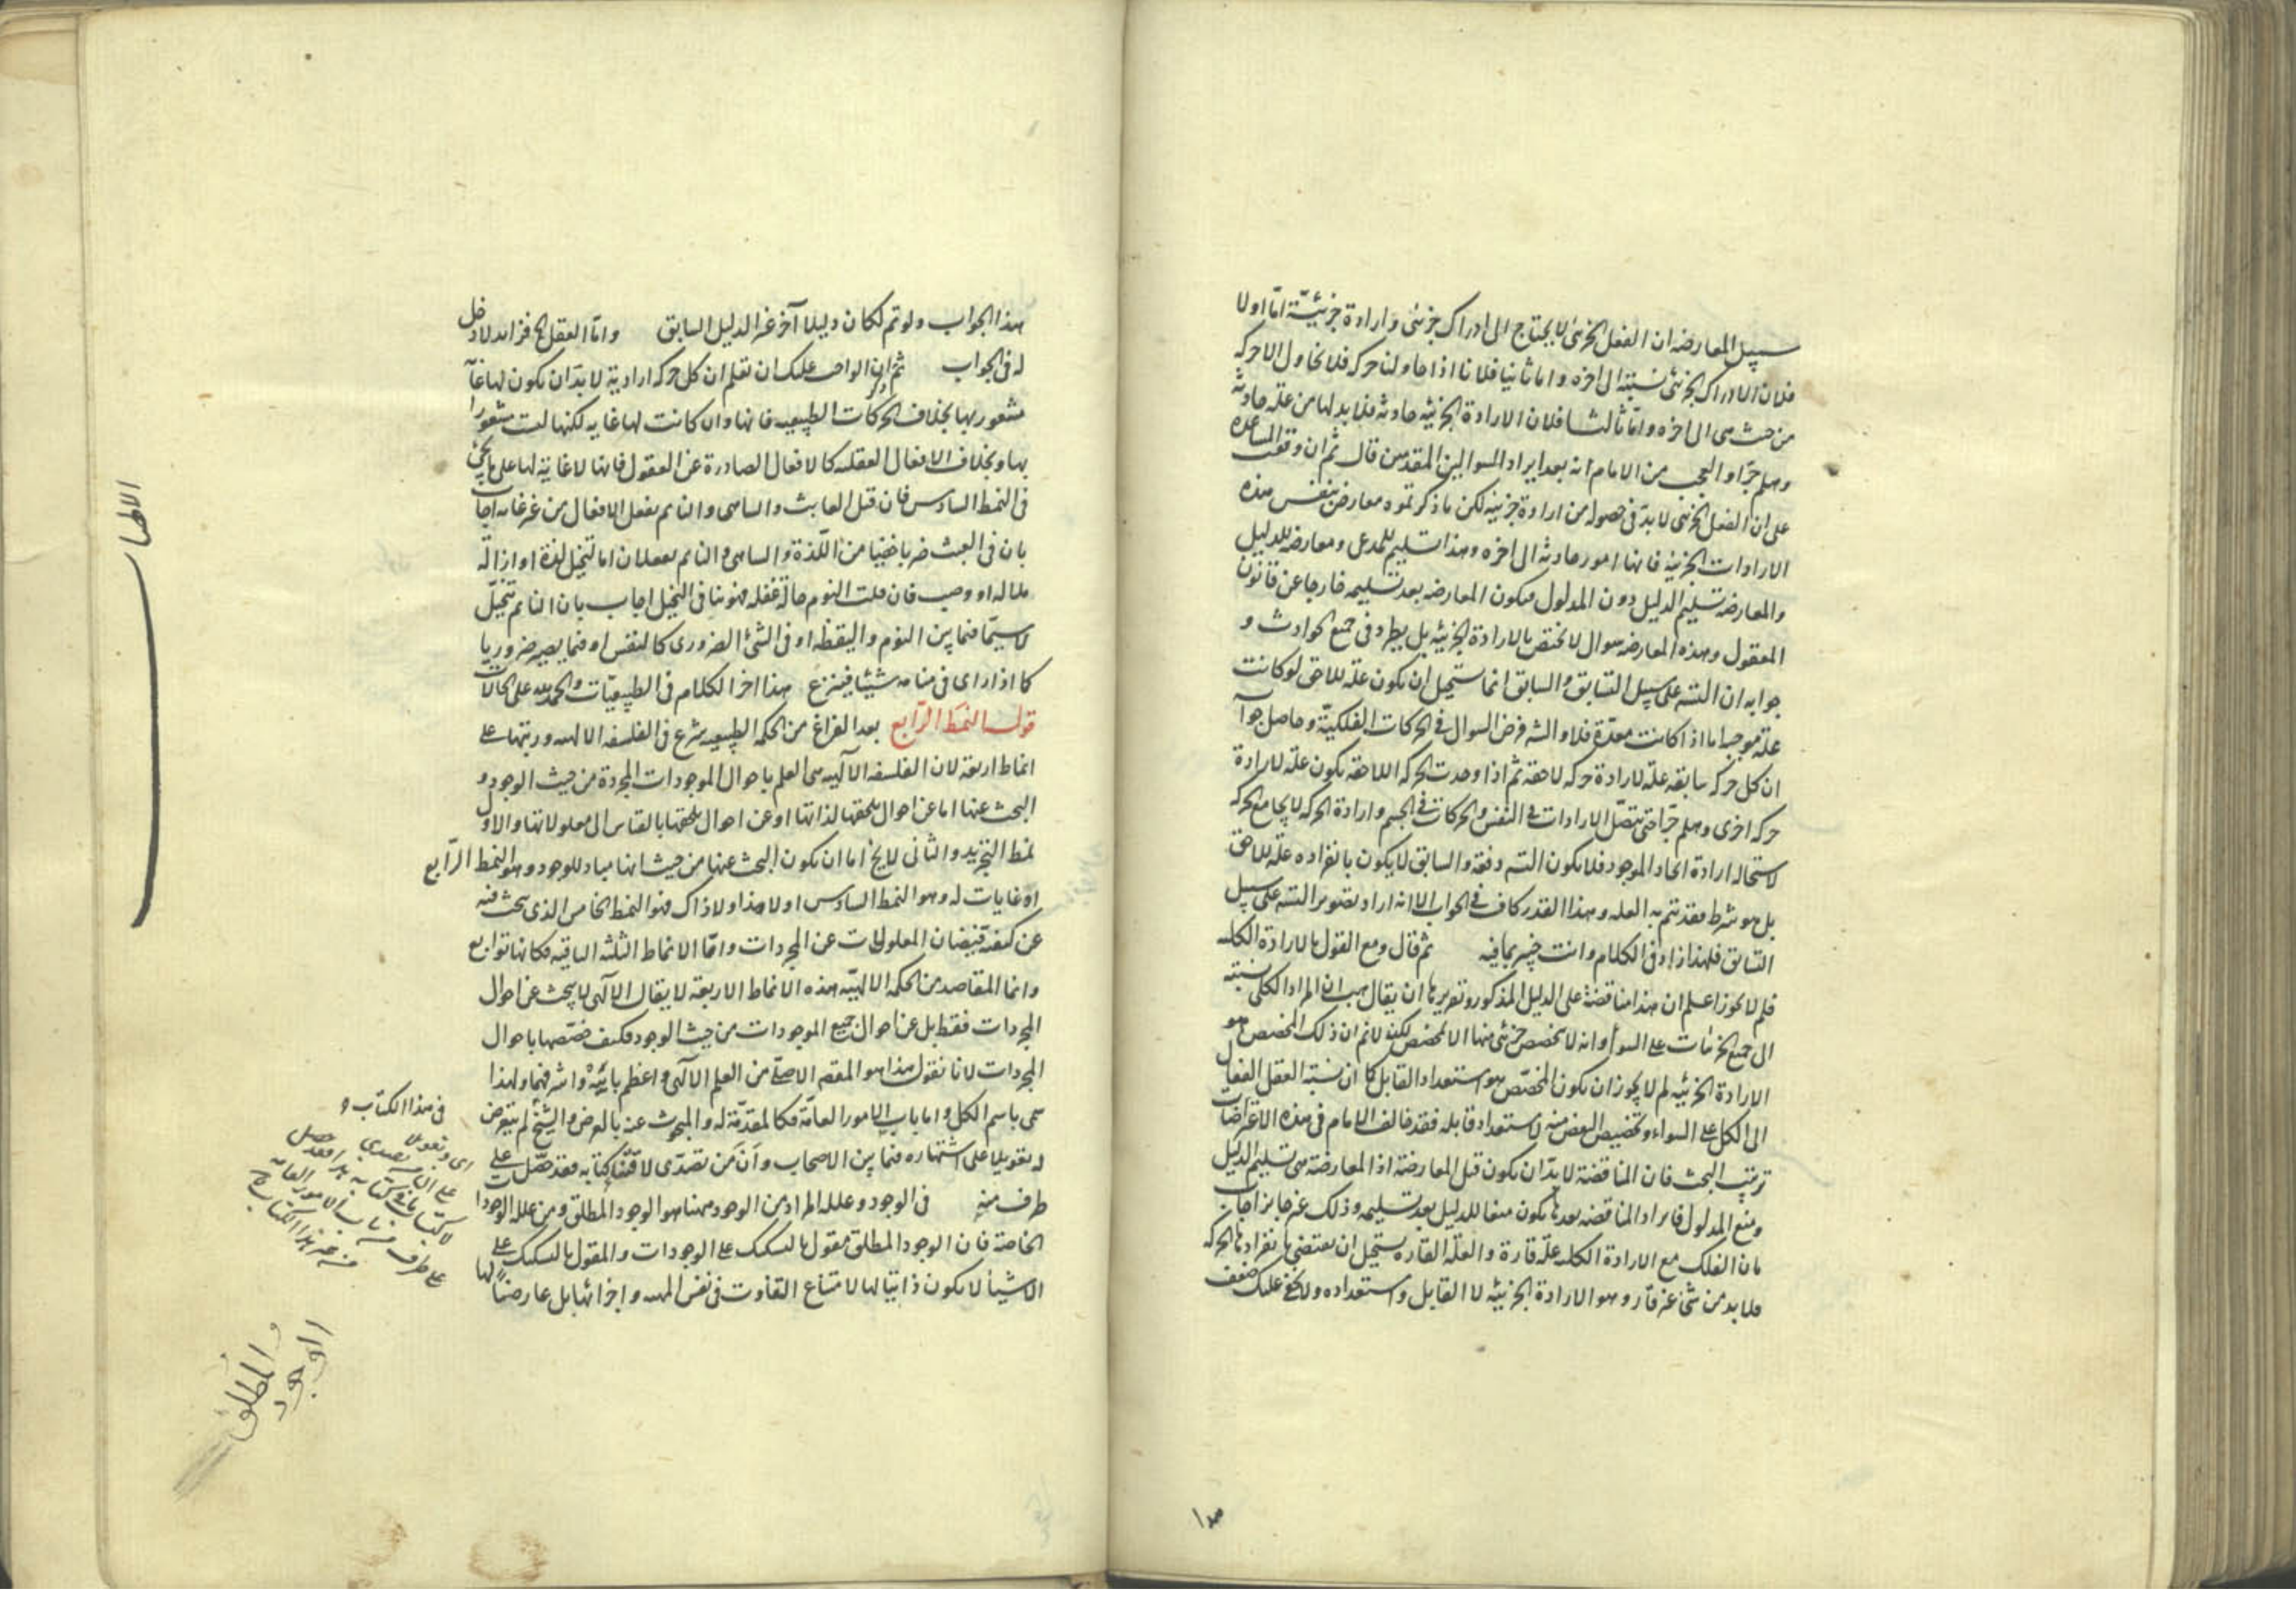 سبيل المعارضه ان الفعل الجزئى لا يحتاج الى ادراك جزئى وارادة جزئيّة امّا اولا
فلان الادراك الجزئى نسبته الى اخره واما ثانيا فلانا اذا حاولنا حركه فلا نحاول الا حركه
من حيث هى الى اخره وامّا ثالثا فلان الارادة الجزئيه حادثه فلا بد لها من علة حادثه
وهلم جرّا والعجب من الامام انه بعد ايراد السوالين المقدمين قال ثم ان وقعت المساعده
على ان الفعل الجزئى لا بدّ فى حصوله من ارادة جزئيه لكن ما ذكرتموه معارض بنفس هذه
الارادات الجزئيه فانها امور حادثه الى اخره وهذا تسليم للمدعى ومعارضه للدليل
والمعارضه تسليم الدليل دون المدلول فيكون المعارضه بعد تسليمه خارجا عن قانون
المعقول وهذه المعارضه سوال لا تختص بالارادة الجزئيه بل يطرد فى جميع الحوادث و
جوابه ان التسه على سبيل السابق والسابق انما يستحيل ان يكون علة للاحق لو كانت
علة موجبه اما اذا كانت معدّة فلا والشه فرض السوال فى الحركات الفلكيّة وحاصل جوابه
ان كل حركه سابقه علة لارادة حركه لاحقه ثم اذا وجدت الحركه اللاحقه يكون علة لارادة
حركه اخرى وهلم جرّا حتى يتصل الارادات فى النفس والحركات فى الجسم وارادة الحركه لا يجامع الحركه
لاستحاله ارادة ايجاد الموجود فلا يكون التسه دفعة والسابق لا يكون بانفراده علة للاحق
بل هو شرط معد يتم به العله وهذا القدر كاف فى الجواب الا انه اراد تصوير التسه على سبيل
السابق فلهذا زاد فى الكلام وانت خبير بما فيه ثم قال ومع القول بالارادة الكليه
فلم لا يجوز اعلم ان هذا مناقضة على الدليل المذكور وتقريرها ان يقال هب ان المراد الكلى نسبته
الى جميع الجزئيات على السواء وانه لا يتخصص جزئى منها الا لمخصص لكن لا نم ان ذلك المخصص هو
الارادة الجزئيه لم لا يجوز ان يكون المخصّص هو استعداد القابل كما ان نسبة العقل الفعال
الى الكل على السواء وتخصيص البعض منه لاستعداد قابله فقد خالف الامام فى هذه الاعتراضات
ترتيب البحث فان المناقضة لا بدّ ان يكون قبل المعارضة اذ المعارضة هى تسليم الدليل
ومنع المدلول فايراد المناقضه بعدها يكون منعا للدليل بعد تسليمه وذلك غير جايز اجاب
بان الفلك مع الارادة الكليه علّة قارة والعلّة القاره يستحيل ان يقتضى بانفرادها الحركه
فلا بد من شئ غير قار وهو الارادة الجزئيّه لا القابل واستعداده ولا يخفى عليك ضعف
هذا الجواب ولو تم لكان دليلا آخر غير الدليل السابق واما العقل فزايد لا دخل
له فى الجواب ثم ان الواجب عليك ان تعلم ان كل حركه ارادية لا بدّ ان يكون لها غاية
مشعور بها بخلاف الحركات الطبيعيه فانها وان كانت لها غايه لكنها ليست مشعورا
بها وبخلاف الافعال العقليه كالافعال الصادرة عن العقول فانها لا غاية لها على ما يجئ
فى النمط السادس فان قيل العابث والساهى والنايم يفعل الافعال من غير غايه اجاب
بان فى العبث ضربا خفيا من اللّذة والساهى والنايم يفعلان اما لتخيل لذة او ازالة
ملاله او وصب فان قلت النوم حالة غفله فهو ينافى التخيل اجاب بان النايم يتخيّل
لا سيّما فيما بين النوم واليقظه او فى الشئ الضرورى كالنفس او فيما يصير ضروريا
كما اذا راى فى منامه شيئا فيفزع هذا اخر الكلام فى الطبيعيّات والحمد لله على الحالات
قوله النمط الرابع بعد الفراغ من الحكمه الطبيعيه شرع فى الفلسفه الالهيه ورتبها على
انماط اربعة لان الفلسفه الالهيه هى العلم باحوال الموجودات المجردة من حيث الوجود و
البحث عنها اما عن احوال تلحقها لذاتها او عن احوال تلحقها بالقياس الى معلولاتها والاول
نمط التجريد والثانى لا يخ اما ان يكون البحث عنها من حيث انها مباد للوجود وهو النمط الرّابع
او غايات له وهو النمط السادس او لا هذا ولا ذاك فهو النمط الخامس الذى يبحث فيه
عن كيفية فيضان المعلولات عن المجردات وامّا الانماط الثلثه الباقيه فكانها توابع
وانما المقاصد من الحكمه الالهيّه هذه الانماط الاربعة لا يقال الالهى لا يبحث عن احوال
المجردات فقط بل عن احوال جميع الموجودات من حيث الوجود فكيف خصّصها باحوال
المجردات لانا نقول هذا هو المقصد الاصلى من العلم الالهى واعظم بابيه واشرفهما ولهذا
سمى باسم الكل واما باب الامور العامّة فكالمقدّمة له والمبحوث عنه بالعرض والشيخ لم يتعرض
له تعويلا على اشتهاره فيما بين الاصحاب وان من تصدّى لاقتناء كتابه فقد حصّل على
طرف منه فى الوجود وعلله المراد من الوجود ههنا هو الوجود المطلق ومن علله الوجودات
الخاصة فان الوجود المطلق مقول بالتشكيك على الوجودات والمقول بالتشكيك على
الاشياء لا يكون ذاتيا لها لامتناع التفاوت فى نفس المهيه واجزائها بل عارضا لها
فى هذا الكتاب
والمطلق
الوجود